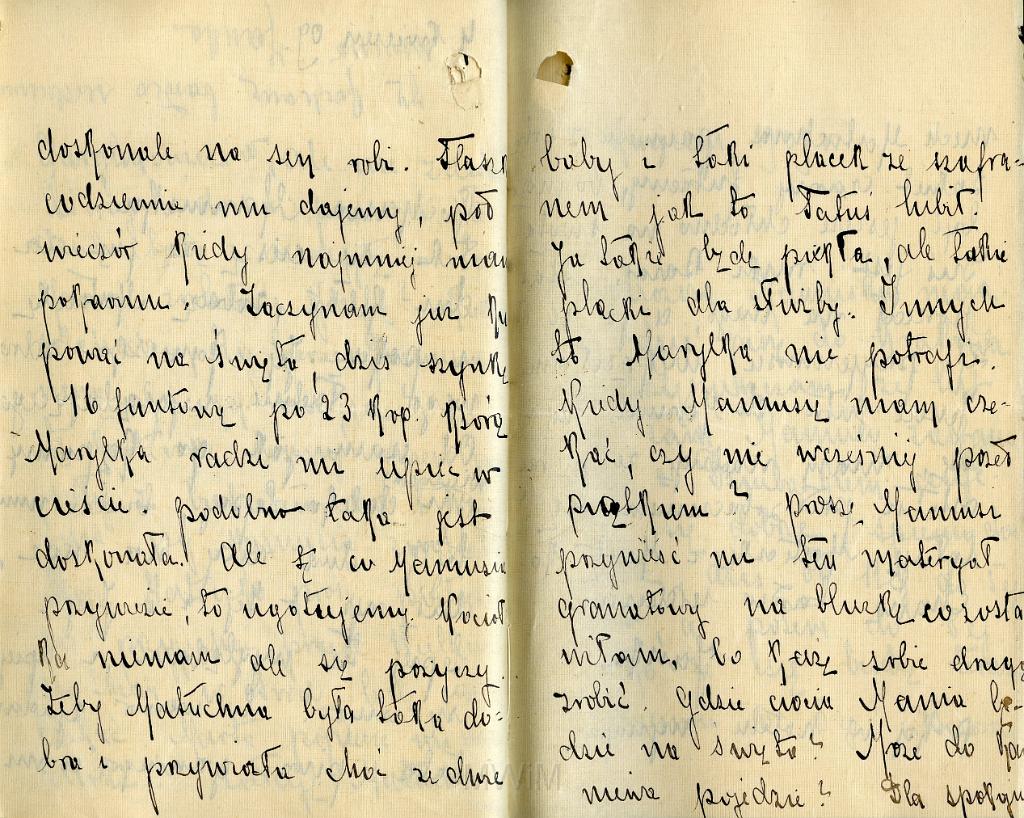 doskonale na sen robi. Flasz
codziennie mu dajemy, pod
wieczór kiedy najmniej mam
pokarmu. Zaczynam już ku
pować na święta, dziś szynkę
16 funtową po 23 kop. którą
Marylka radzi mi upiec w
cieście. podobno taka jest
doskonała. Ale tę co Mamusia
przywiezie, to ugotujemy. Kocioł
ka niemam ale się pożyczy.
Żeby Matuchna była taka do=
bra i przywiozła choć ze dwie
baby i taki placek ze szafra=
nem jak to Tatuś lubił.
Ja takie będę piekła, ale takie
placki dla służby. Innych
to Marylka nie potrafi.
Kiedy Mamusię mam cze-
kać, czy nie wcześniej przed
piątkiem? proszę Mamusi
przywieść mi ten materyał
granatowy na bluzkę co zosta
wiłam, bo każę sobie drugą
zrobić. Gdzie ciocia Mania bę-
dzie na święta? Może do
pojedzie? Dla
MWW